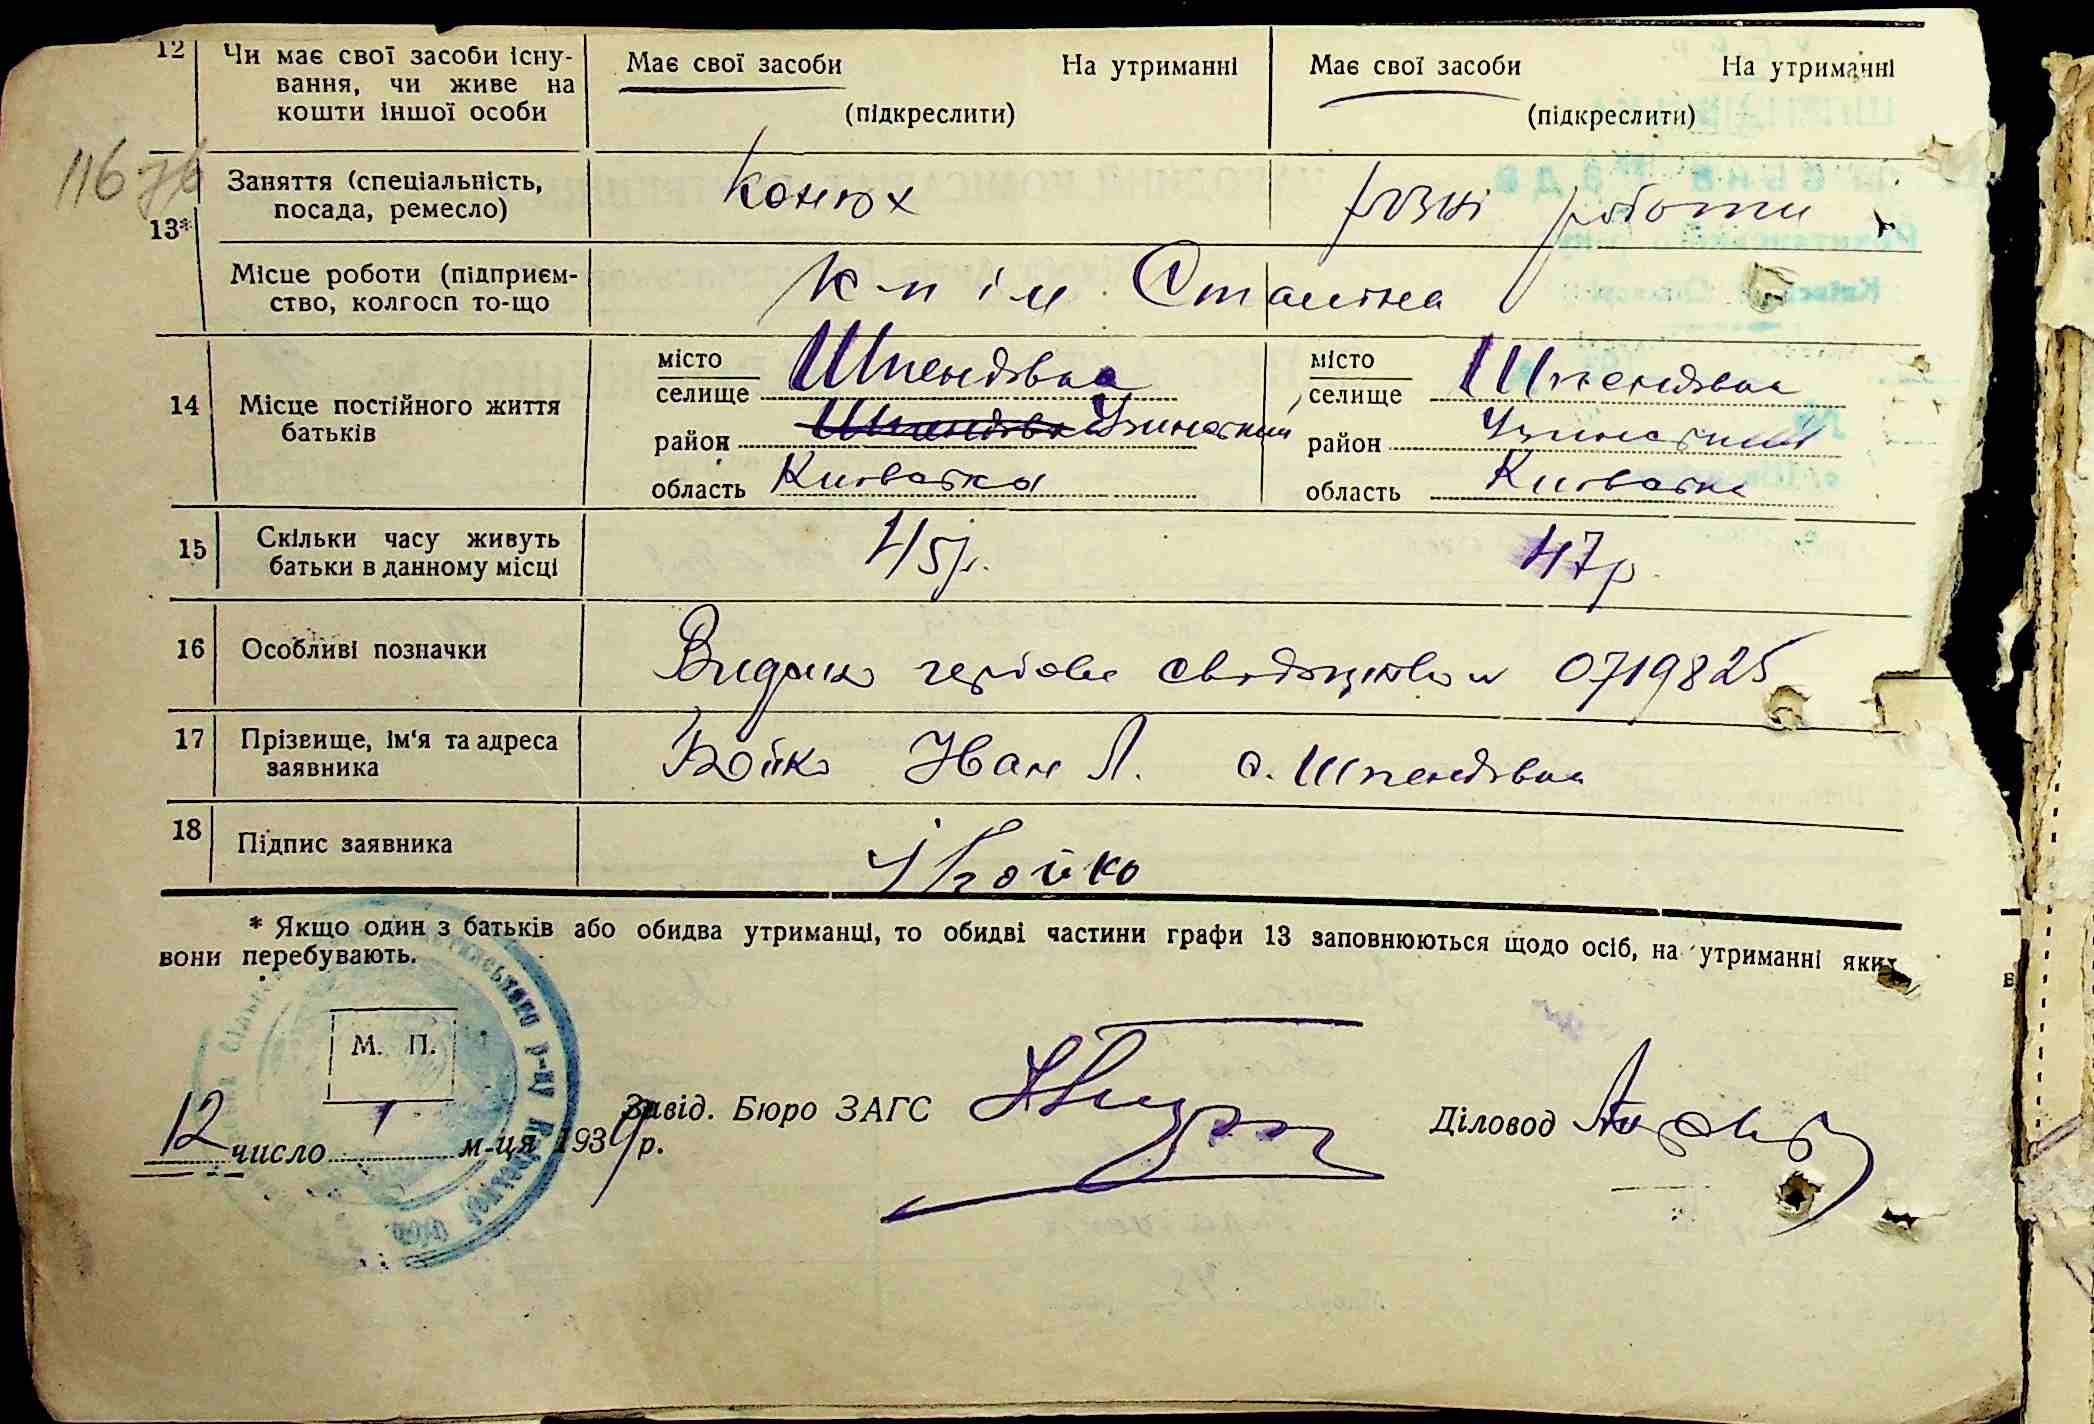 12 Чи має свої засоби існу- Має свої засоби На утриманні Має свої засоби На утриманні
вання, чи живе на
кошти іншої особи (підкреслити) (підкреслити)
116
13* Заняття (спеціальність, Конюх різні роботи
посада, ремесло)
Місце роботи (підприєм- к-п ім Сталіна
ство, колгосп то-що
14 Місце постійного життя батьків місто селище Шпендівка місто селище Шпендівка
район Узинський район Узинський
область Київська область Київська
15 Скільки часу живуть 45р. 47р.
батьки в данному місці
16 Особливі позначки Видано гербове свідоцтво № 0719825
17 Прізвище, ім'я та адреса Бойко Иван Л. с. Шпендівка
заявника
18 Підпис заявника І Бойко
* Якщо один з батьків або обидва утриманці, то обидві частини графи 13 заповнюються щодо осіб, на утриманні яких
вони перебувають.
М. П.
Завід. Бюро ЗАГС Діловод
12 число 1 м-ця 1939р.